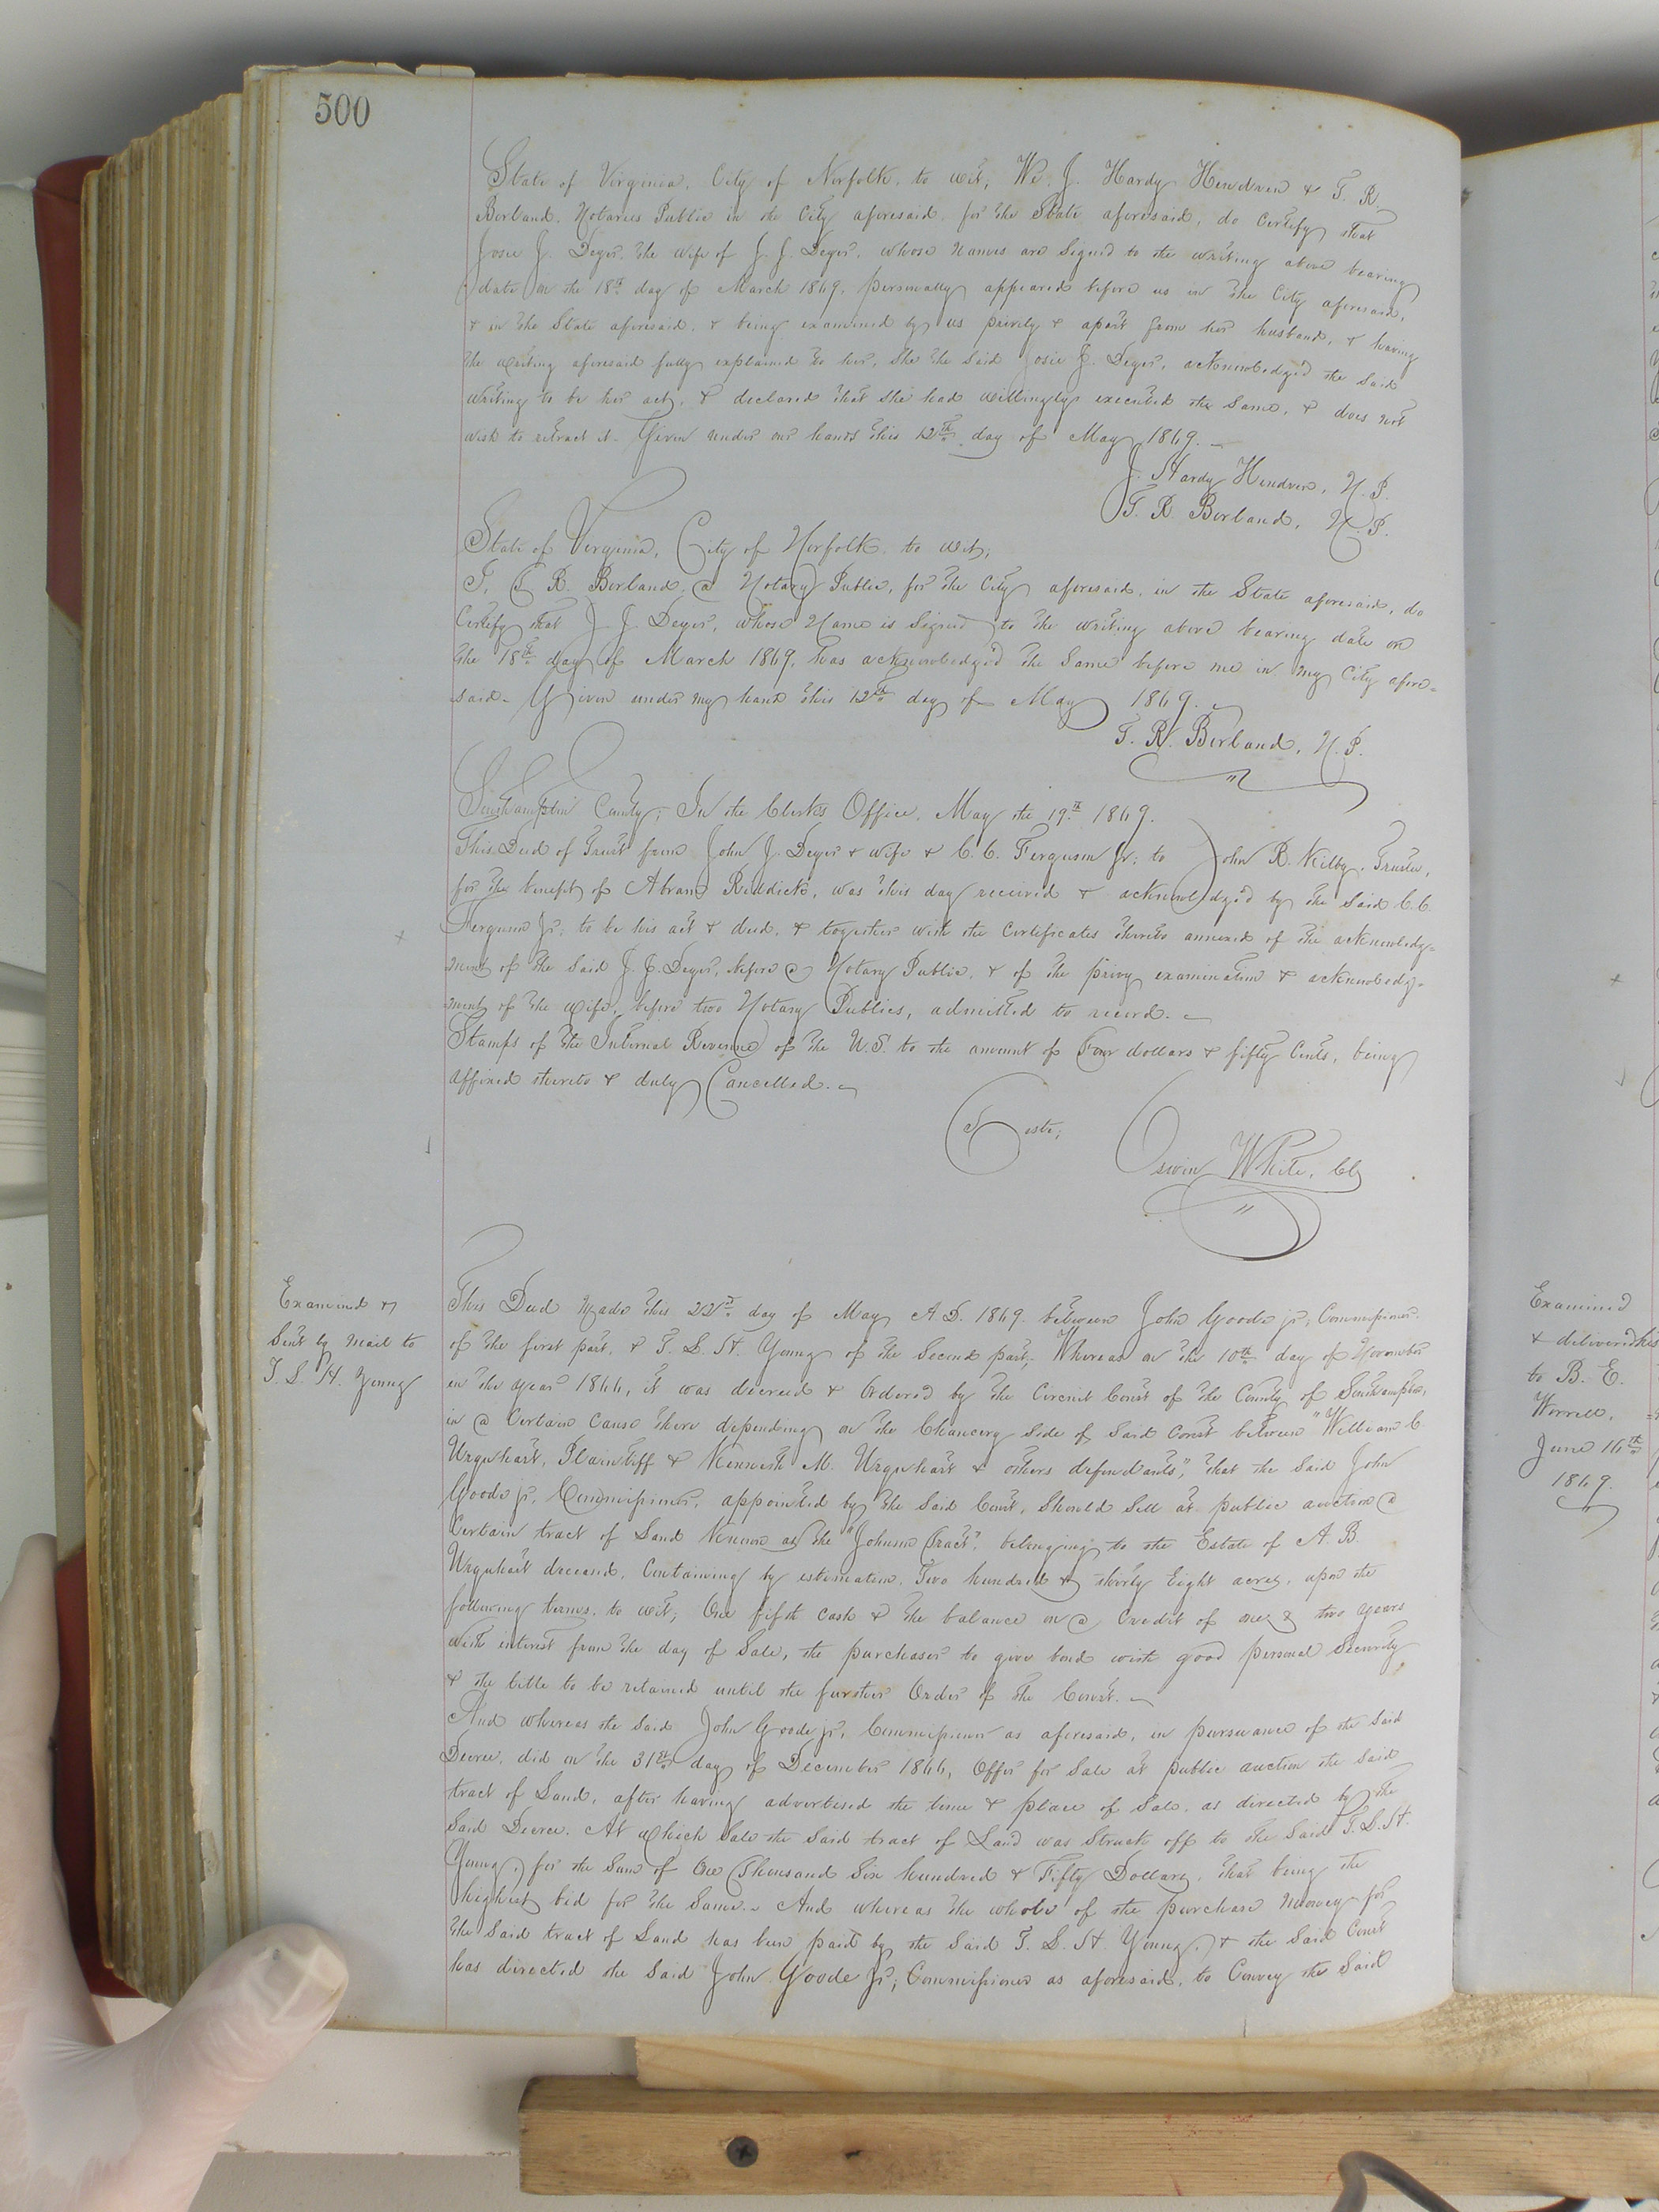 500
State of Virginia, City of Norfolk, to wit, We J. Hardy Hendren & T. R.
Borland, Notaries Public in the City aforesaid, for the State aforesaid, do Certify that
Josie J. Deyer, the wife of J. J. Deyer, whose names are signed to the writing above bearing
date on the 18th day of March 1869, personally appeared before us in the City aforesaid,
& in the State aforesaid, & being examined by us privily & apart from her husband, & having
the writing aforesaid fully explained to her, she the said Josie J. Deyer, acknowledged the said
writing to be her act, & declared that she had willingly executed the same, & does not
wish to retract it. Given under our hands this 12th day of May 1869.
J. Hardy Hendren, N. P.
T. R. Borland, N. P.
State of Virginia, City of Norfolk, to wit,
I, T. R. Borland, a Notary Public, for the City aforesaid, in the State aforesaid, do
Certify that J. J. Deyer, whose Name is Signed to the writing above bearing date on
the 18th day of March 1869, has acknowledged the same before me in my City afore-
said. Given under my hand this 12th day of May 1869.
T. R. Borland, N. P.
Southampton County; In the Clerk's Office, May the 19th 1869.
This Deed of Trust from John J. Deyer & wife & C. C. Ferguson Jr; to John R. Kilby, Trustee,
for the benefit of Abram Riddick, was this day received & acknowledged by the said C. C.
Ferguson Jr; to be his act & deed, & together with the Certificates thereto annexed of the acknowledg-
ment of the said J. J. Deyer, before a Notary Public, & of the privy examination & acknowledg-
ment of the wife, before two Notary Publics, admitted to record.
Stamps of the Internal Revenue of the U.S. to the amount of Four dollars & fifty Cents, being
affixed thereto & duly Cancelled.
Teste;
Oswin White, Clk
Examined &
Sent by mail to
T. L. H. Young
This Deed Made this 22nd day of May A D. 1869. between John Goode jr; Commissioner
of the first part, & T. L. H. Young of the Second part; Whereas on the 10th day of November
in the year 1866, it was decreed & Ordered by the Circuit Court of the County of Southampton,
in a Certain Cause there depending on the Chancery Side of Said Court between "William C
Urquhart, Plaintiff & Kenneth M. Urquhart & others defendants", that the said John
Goode jr, Commissioner, appointed by the Said Court, Should Sell at public auction a
Certain tract of Land Known as the "Johnson Tract", belonging to the Estate of A. B.
Urquhart deceased, Containing by estimation, Two hundred & thirty Eight acres, upon the
following terms, to wit; One fifth cash & the balance on a Credit of one & two years
with interest from the day of Sale, the purchaser to give bond with good personal Security
& the title to be retained until the further Order of the Court.
And whereas the Said John Goode jr, Commissioner as aforesaid, in pursuance of the Said
Decree, did on the 31st day of December 1866, Offer for Sale at public auction the Said
tract of Land, after having advertised the time & place of Sale, as directed by the
Said Decree. At which Sale the Said tract of Land was Struck off to the Said T. L. H.
Young, for the Sum of One Thousand Six hundred & Fifty Dollars, that being the
highest bid for the Same. And whereas the whole of the purchase money for
the Said tract of Land has been paid by the Said T. L. H. Young, & the Said Court
has directed the Said John Goode Jr; Commissioner as aforesaid, to Convey the Said
Examined
& delivered
to B. E.
Worrell,
June 16th
1869.